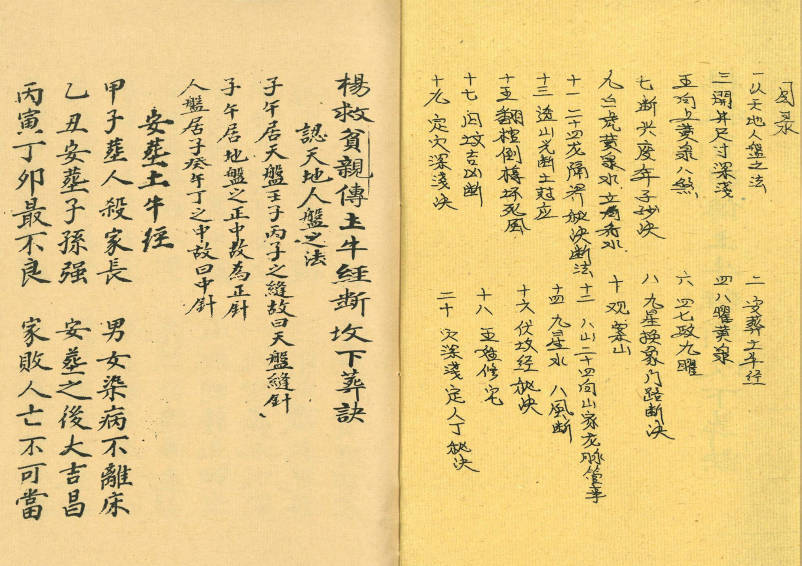 目录
一 认天地人盘之法 二 安葬土牛经
三 開井尺寸深淺 四 八曜黄泉
五 向上黄泉八煞 六 四七政九曜
七 断兴废年子孙决 八 九星换象门路断决
九 白虎黄泉水 立向音水 十 观案山
十一 二十四龙隔界秘决断法 十二 八山二十四向山家龙脉管事
十三 透山光断土冠应 十四 九星水 八風断
十五 翻棺倒槨坏死風 十六 伏坟经秘决
十七 闪坟吉凶断 十八 五姓修宅
十九 定穴深淺决 二十 穴深淺定人丁秘决
楊救貧親傳土牛經断坟下葬訣
認天地人盤之法
子午居天盤壬子丙子之縫故曰天盤縫針
子午居地盤之正中故為正針
人盤居子癸午丁之中故曰中針
安塟土牛経
甲子塟人殺家長 男女染病不離床
乙丑安塟子孫强 安塟之後大吉昌
丙寅丁卯最不良 家敗人亡不可當